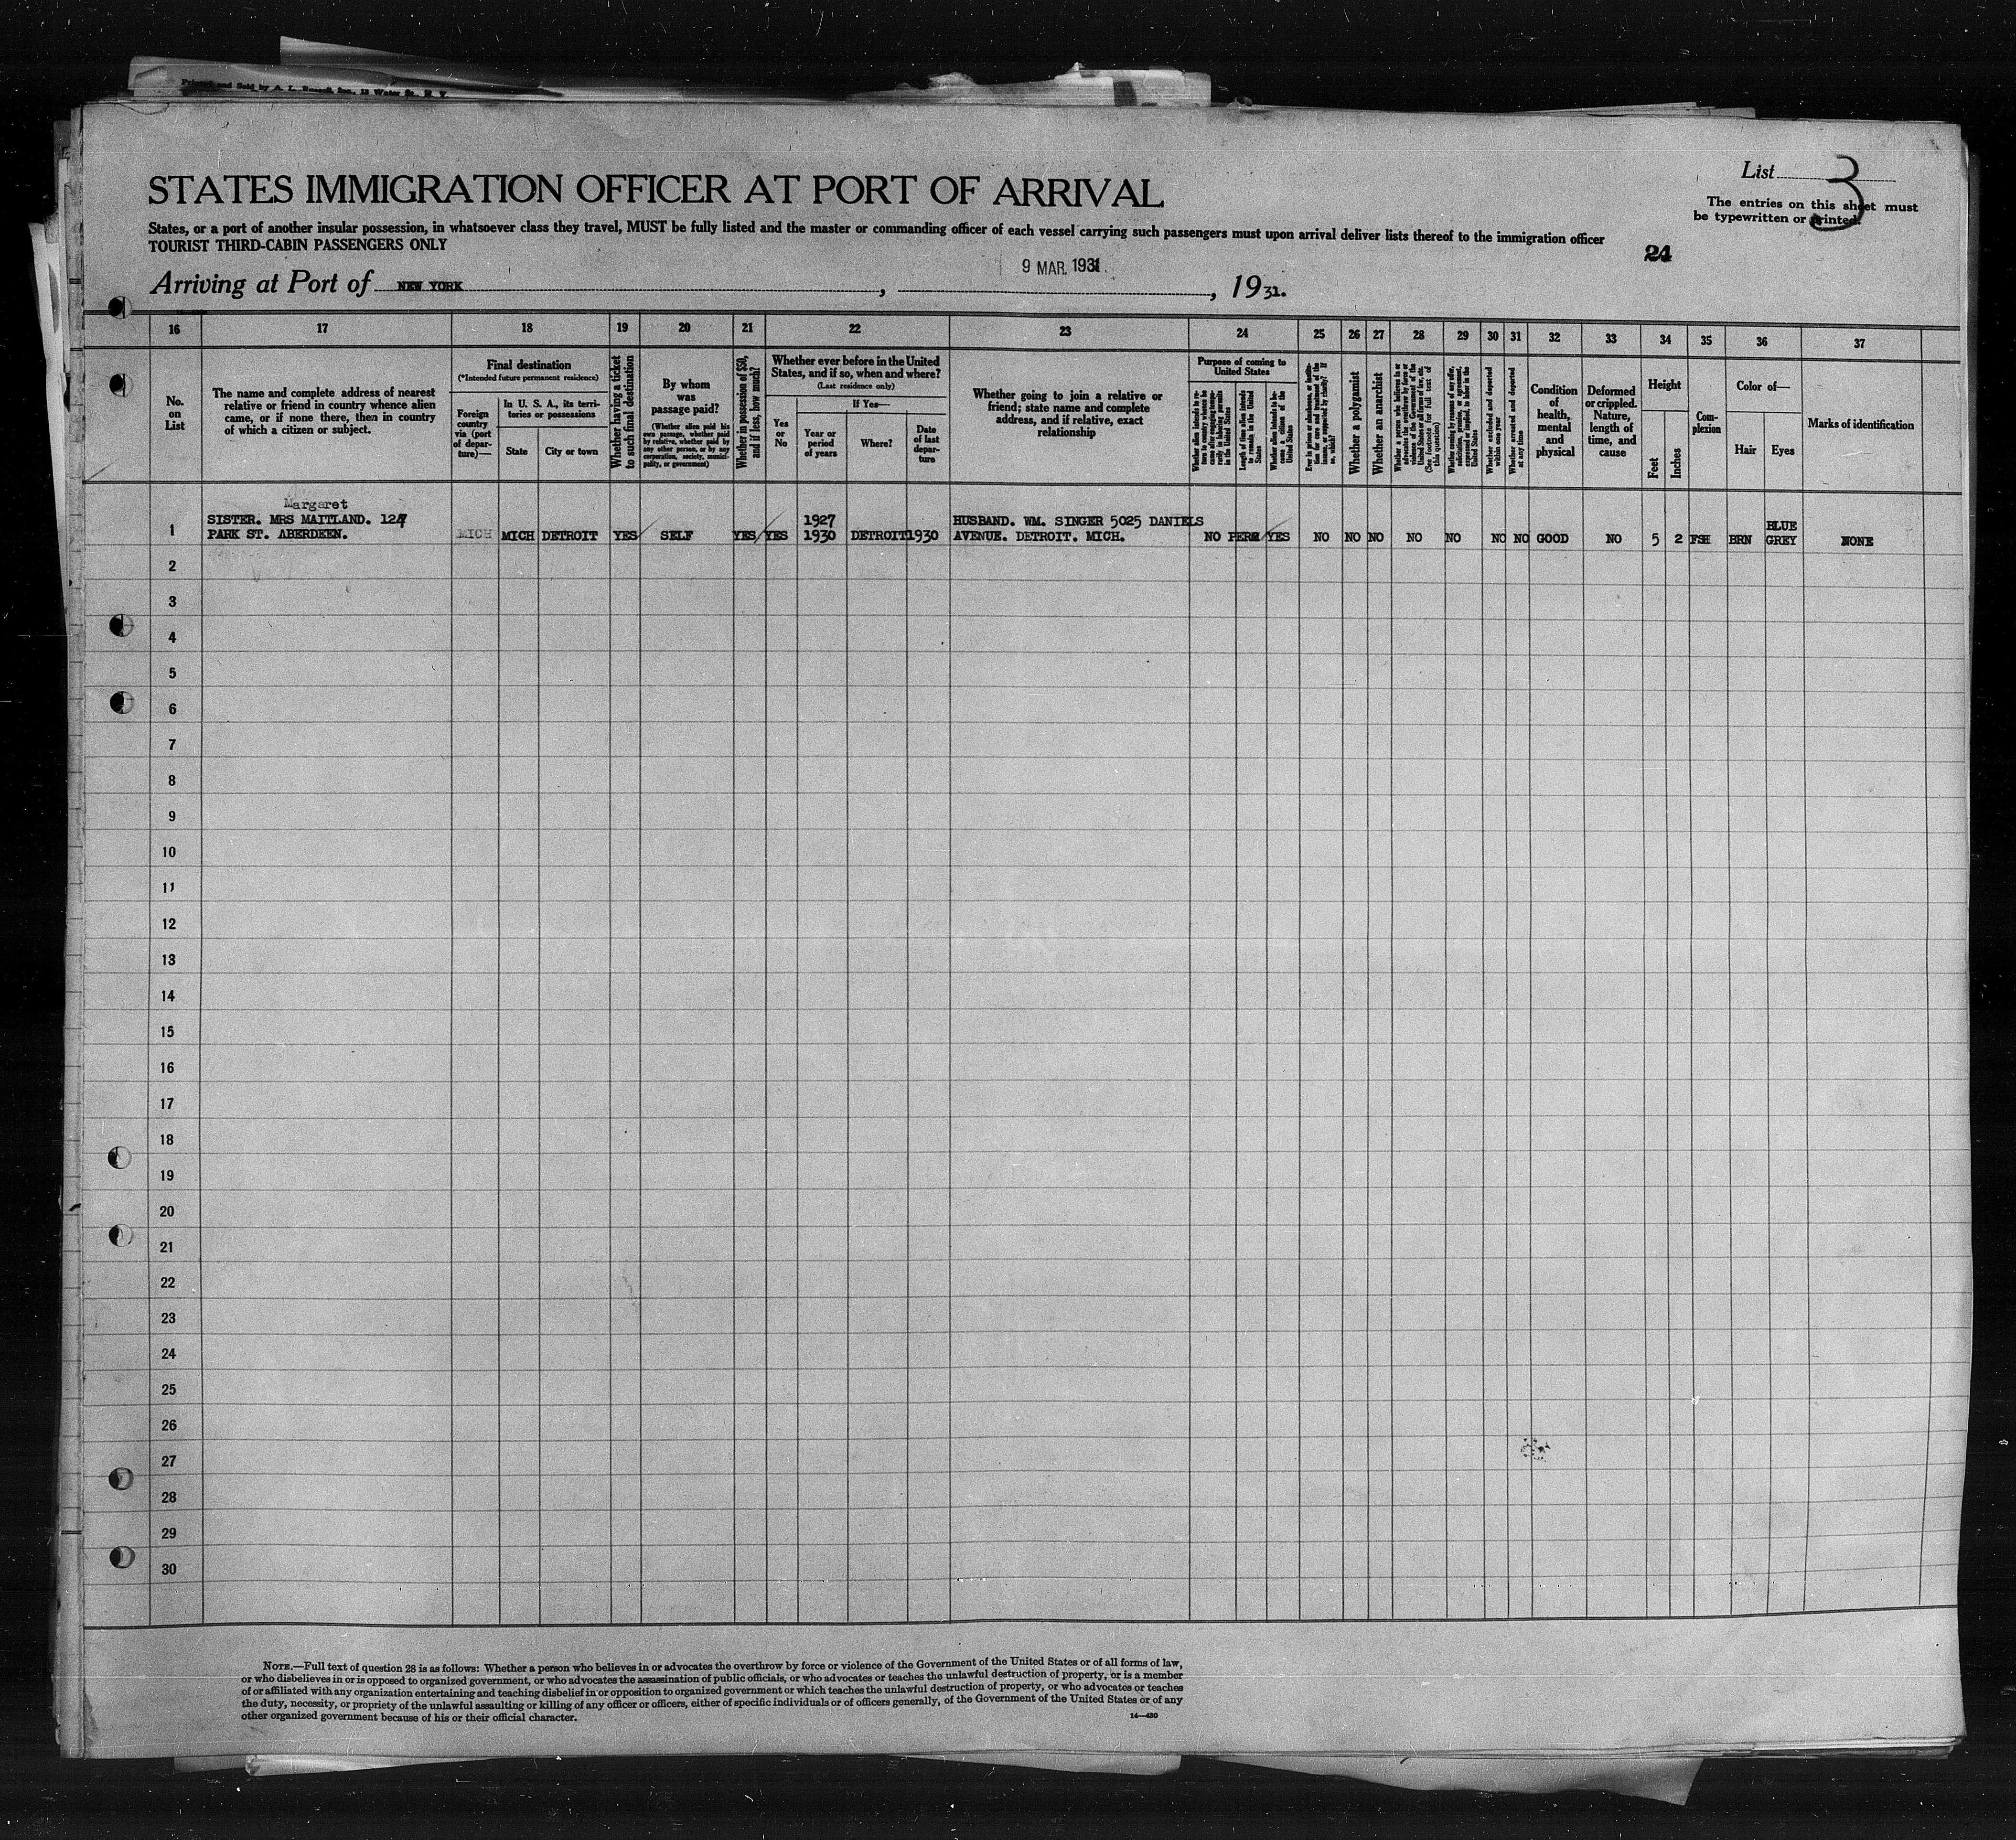 Printed and Sold by A. L. Russell, Inc., 12 Water St., N. Y.
List 3
STATES IMMIGRATION OFFICER AT PORT OF ARRIVAL
The entries on this sheet must
be typewritten or printed.
States, or a port of another insular possession, in whatsoever class they travel, MUST be fully listed and the master or commanding officer of each vessel carrying such passengers must upon arrival deliver lists thereof to the immigration officer
TOURIST THIRD-CABIN PASSENGERS ONLY
24
9 MAR. 1931.
Arriving at Port of NEW YORK, , 1931.
16 17 18 19 20 21 22 23 24 25 26 27 28 29 30 31 32 33 34 35 36 37
No.
on
List
The name and complete address of nearest
relative or friend in country whence alien
came, or if none there, then in country
of which a citizen or subject.
Final destination
(*Intended future permanent residence)
Foreign
country
via (port
of depar-
ture)—
In U. S. A., its terri-
tories or possessions
State
City or town
Whether having a ticket
to such final destination
By whom
was
passage paid?
(Whether alien paid his
own passage, whether paid
by relative, whether paid by
any other person, or by any
corporation, society, munici-
pality, or government)
Whether in possession of $50,
and if less, how much?
Whether ever before in the United
States, and if so, when and where?
(Last residence only)
Yes
or
No
If Yes—
Year or
period
of years
Where?
Date
of last
depar-
ture
Whether going to join a relative or
friend; state name and complete
address, and if relative, exact
relationship
Purpose of coming to
United States
Whether alien intends to re-
turn to country whence he
came after engaging tempo-
rarily in laboring pursuits
in the United States
Length of time alien intends
to remain in the United
States
Whether alien intends to be-
come a citizen of the
United States
Ever in prison or almshouse, or institu-
tion for care and treatment of the
insane, or supported by charity? If
so, which?
Whether a polygamist
Whether an anarchist
Whether a person who believes in or
advocates the overthrow by force or
violence of the Government of the
United States or all forms of law, etc.
(See footnote for full text of
this question)
Whether coming by reason of any offer,
solicitation, promise, or agreement,
expressed or implied, to labor in the
United States
Whether excluded and deported
within one year
Whether arrested and deported
at any time
Condition
of
health,
mental
and
physical
Deformed
or crippled.
Nature,
length of
time, and
cause
Height
Feet
Inches
Com-
plexion
Color of—
Hair
Eyes
Marks of identification
Margaret
SISTER. MRS MAITLAND. 127 1927 HUSBAND. WM. SINGER 5025 DANIELS BLUE
1 PARK ST. ABERDEEN. MICH MICH DETROIT YES SELF YES YES 1930 DETROIT 1930 AVENUE. DETROIT. MICH. NO PERM YES NO NO NO NO NO NO NO GOOD NO 5 2 FSH BRN GREY NONE
2
3
4
5
6
7
8
9
10
11
12
13
14
15
16
17
18
19
20
21
22
23
24
25
26
27
28
29
30
NOTE.—Full text of question 28 is as follows: Whether a person who believes in or advocates the overthrow by force or violence of the Government of the United States or of all forms of law,
or who disbelieves in or is opposed to organized government, or who advocates the assassination of public officials, or who advocates or teaches the unlawful destruction of property, or is a member
of or affiliated with any organization entertaining and teaching disbelief in or opposition to organized government or which teaches the unlawful destruction of property, or who advocates or teaches
the duty, necessity, or propriety of the unlawful assaulting or killing of any officer or officers, either of specific individuals or of officers generally, of the Government of the United States or of any
other organized government because of his or their official character.
14—430